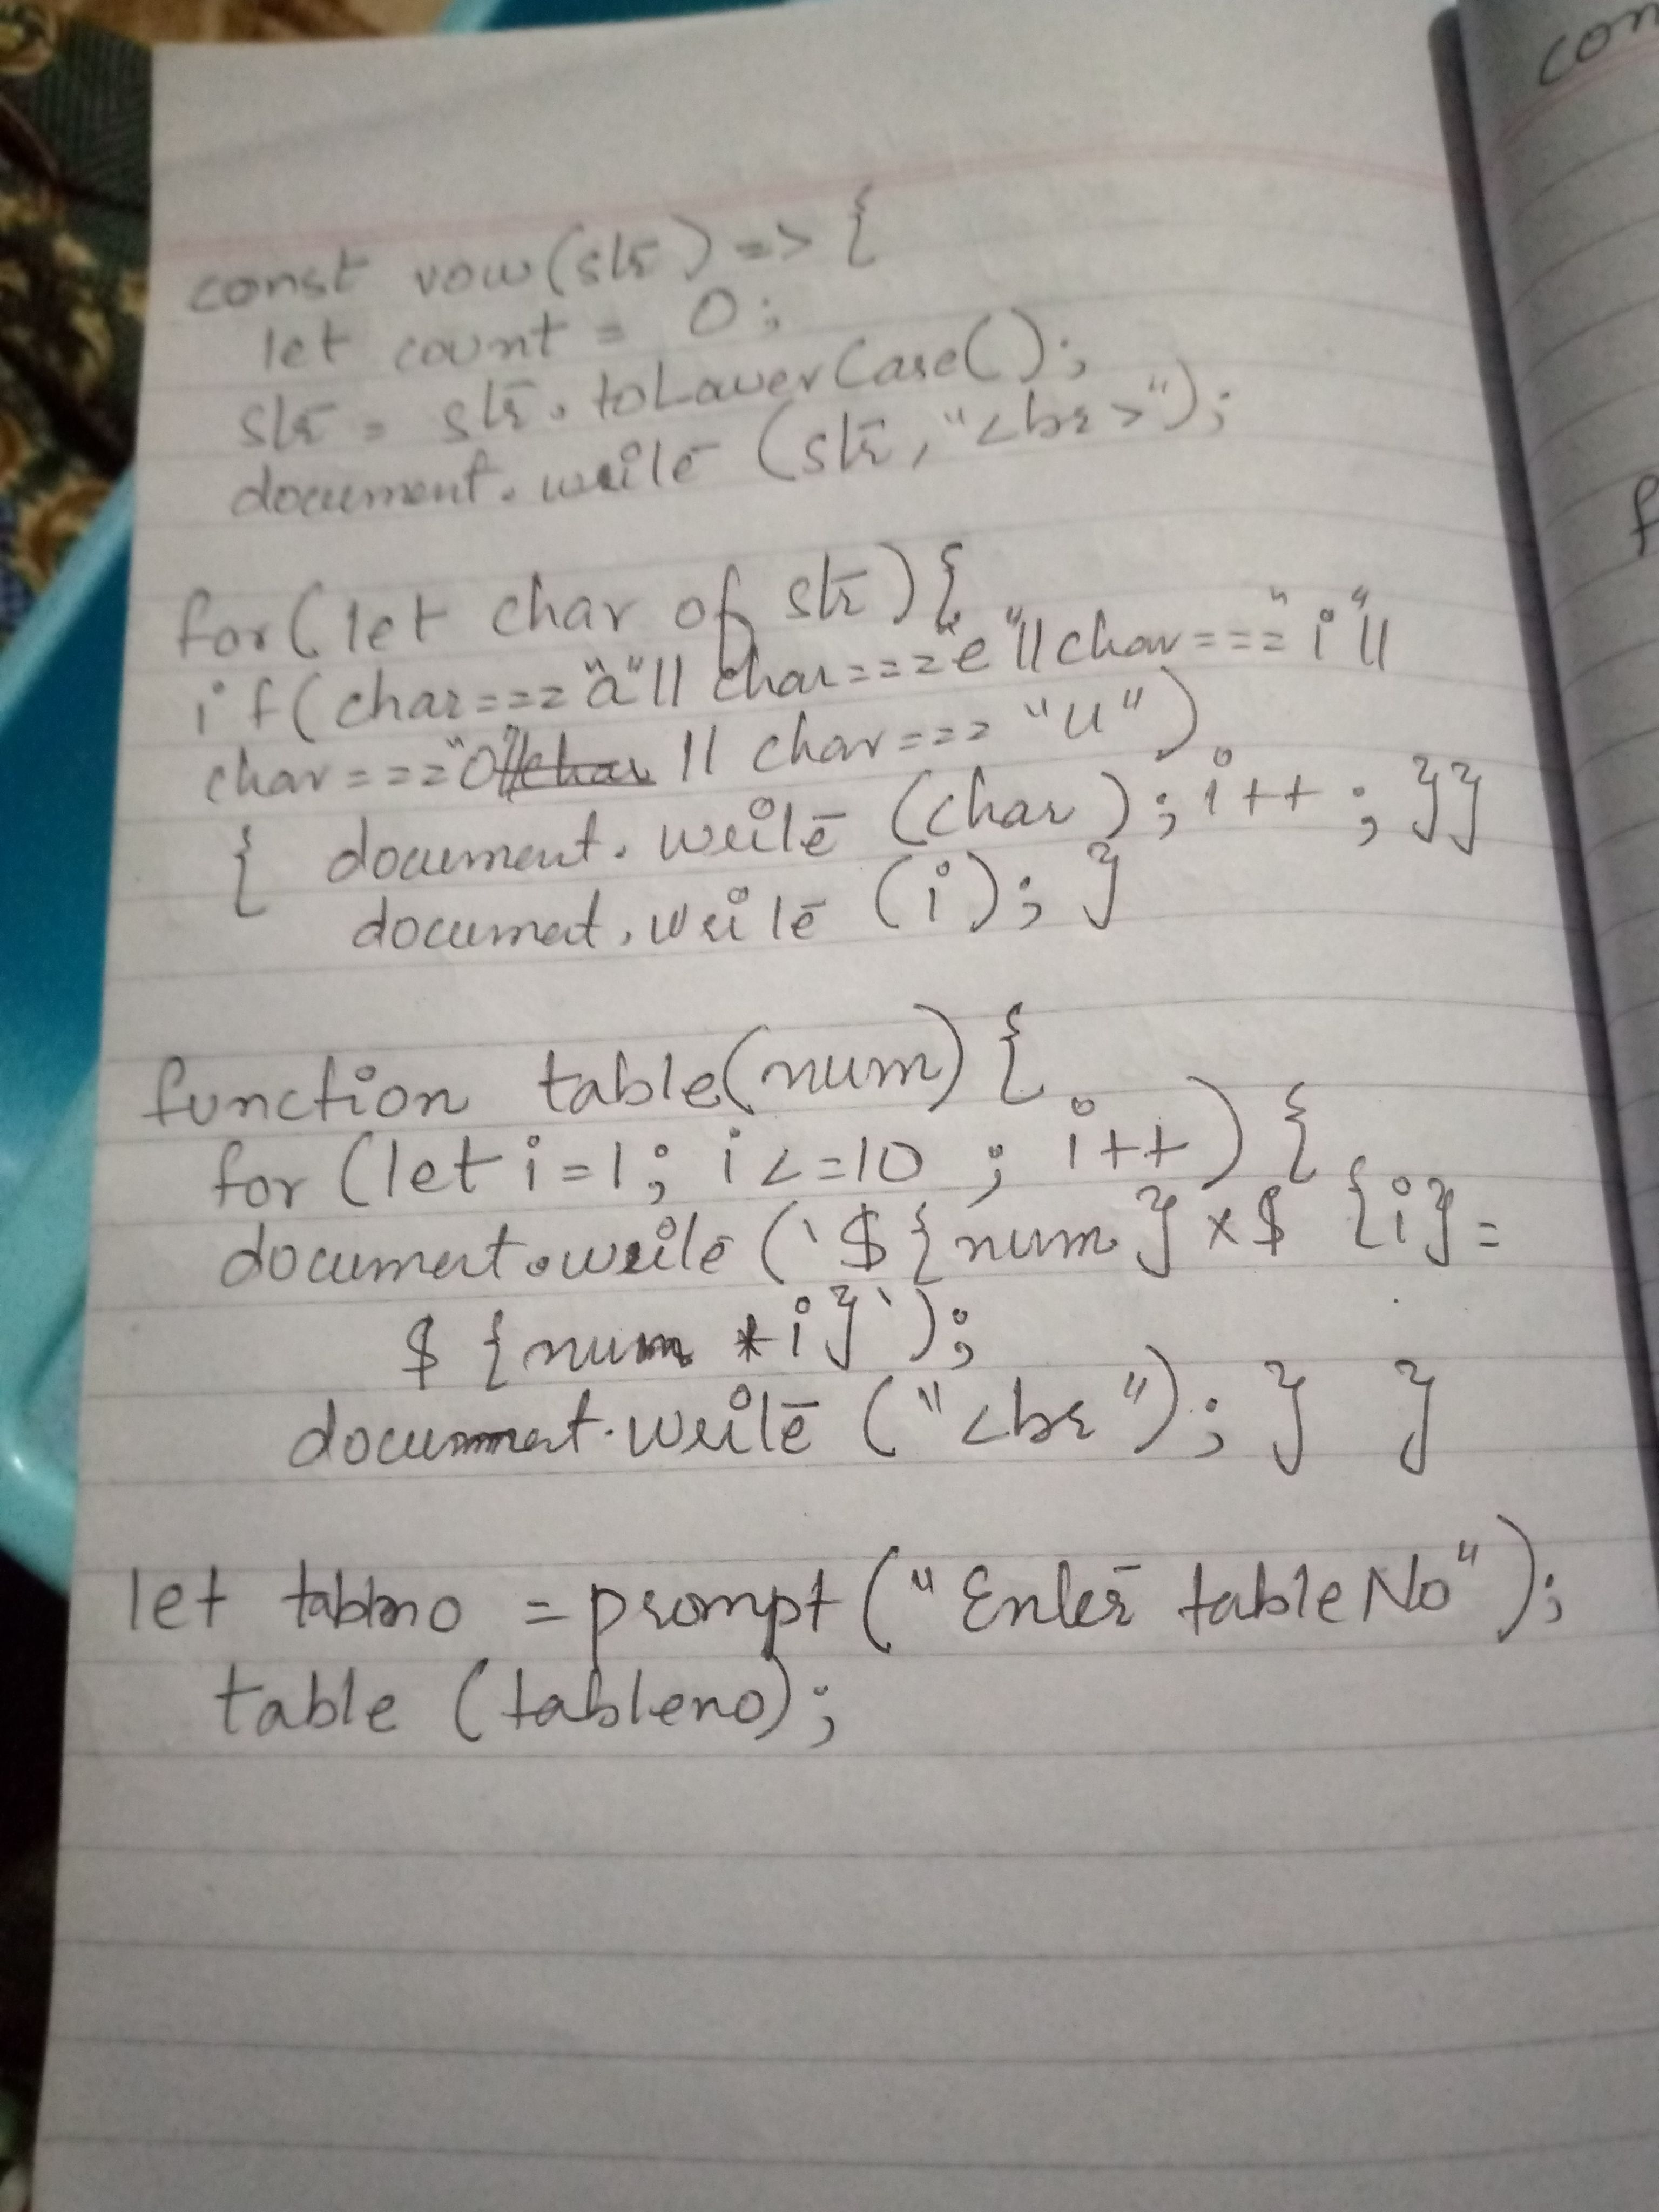 const vow(str) => {
let count = 0;
str = str.toLowerCase();
document.write (str, "<br>");
for(let char of str){
if(char==="a"|| char==="e"|| char==="i"||
char==="o" || char === "u")
{ document.write (char); i++; }}
document.write (i); }
function table(num) {
for (let i=1; i<=10 ; i++) {
document.write (`${num} x $ {i}=
$ {num * i}`);
document.write ("<br"); } }
let tableno = prompt ("Enter table No");
table (tableno);
con
f